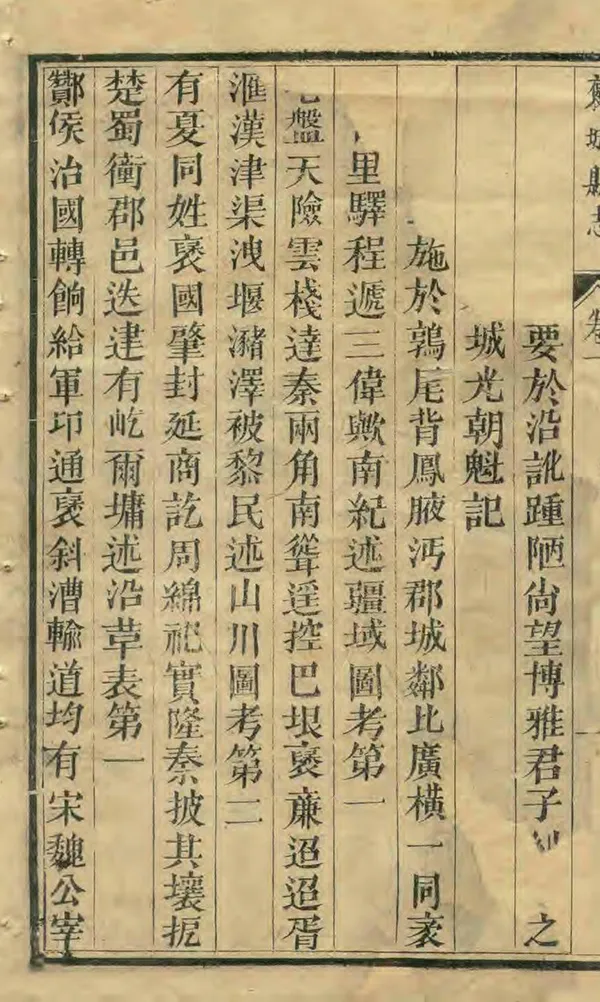 城縣志
卷一
要於沿訛踵陋尙望博雅君子之
城光朝魁記
施於鶉尾背鳳腋沔郡城鄰比廣橫一同袤
里驛程遞三偉歟南紀述疆域圖考第一
盤天險雲棧達秦兩角南聳遥控巴垠褒廉迢迢胥
滙漢津渠洩堰瀦澤被黎民述山川圖考第二
有夏同姓褒國肇封延商訖周綿祀實隆秦披其壤扼
楚蜀衝郡邑迭建有屹爾墉述沿革表第一
酇侯治國轉餉給軍卭通褒斜漕輸道均有宋魏公宰